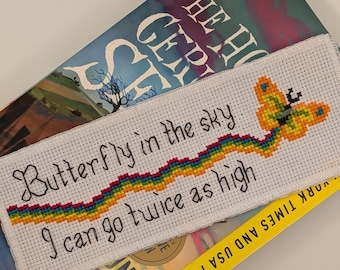 THE HO
GE
SH
Butterfly in the sky
I can go twice as high
YORK TIMES AND USA